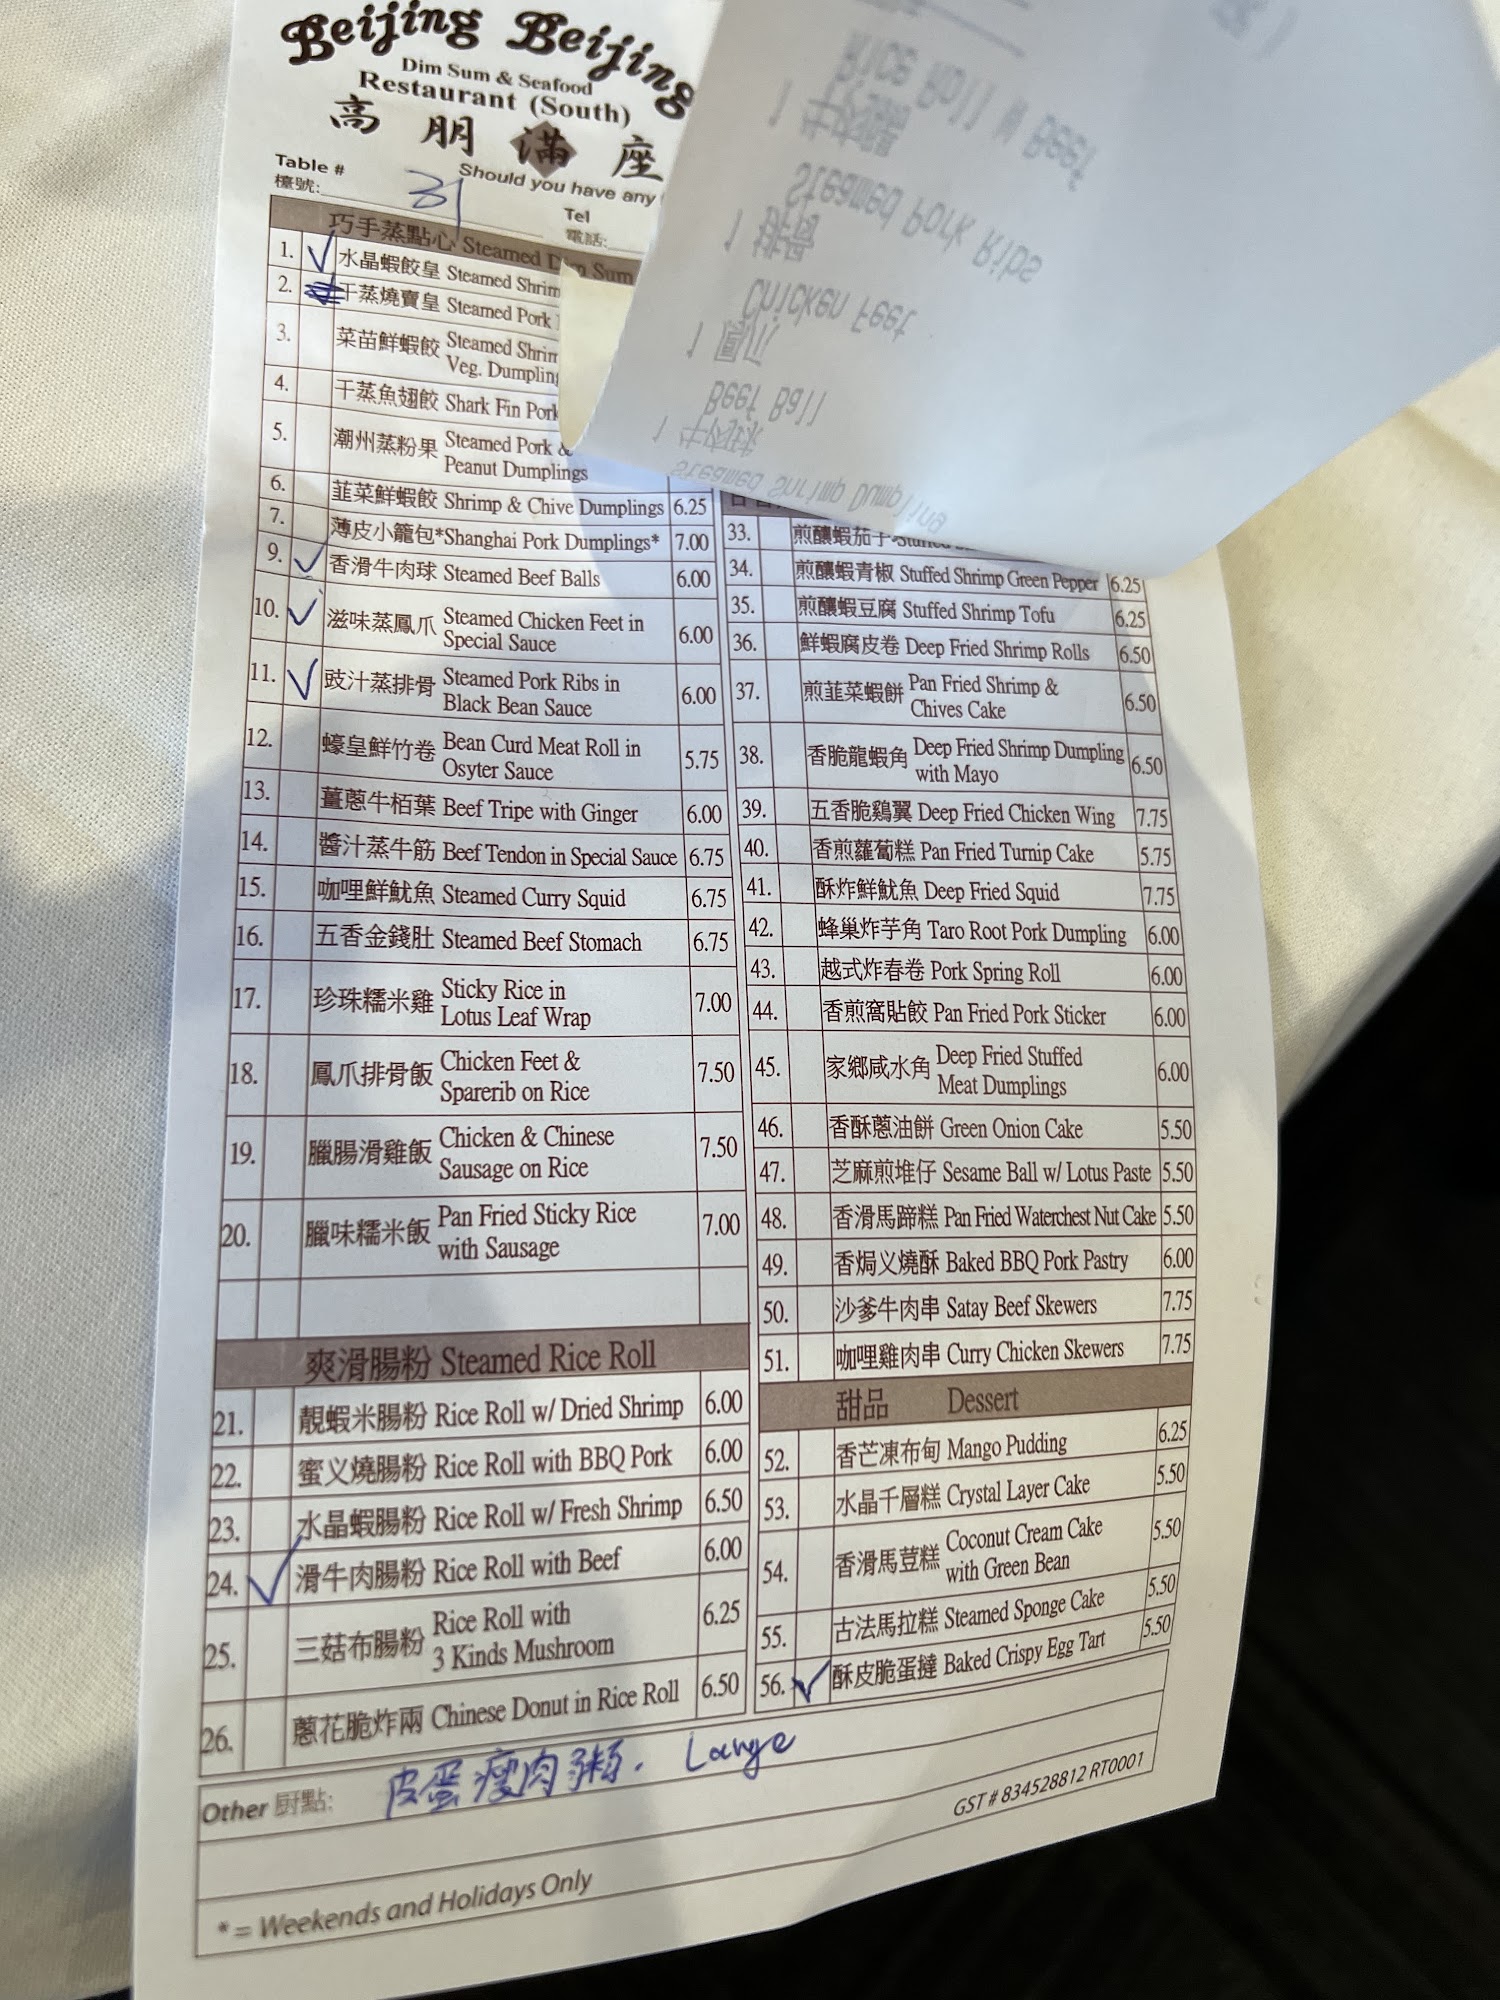 Beijing Beijing
Dim Sum & Seafood
Restaurant (South)
高朋滿座
Table #
檯號:
31
Should you have any
Tel
電話:
巧手蒸點心 Steamed Dim Sum
1. ✓ 水晶蝦餃皇 Steamed Shrim
2. 干蒸燒賣皇 Steamed Pork
3. 菜苗鮮蝦餃 Steamed Shrim
Veg. Dumpling
4. 干蒸魚翅餃 Shark Fin Pork
5. 潮州蒸粉果 Steamed Pork &
Peanut Dumplings
6. 韮菜鮮蝦餃 Shrimp & Chive Dumplings 6.25
7. 薄皮小籠包*Shanghai Pork Dumplings* 7.00
9. ✓ 香滑牛肉球 Steamed Beef Balls 6.00
10. ✓ 滋味蒸鳳爪 Steamed Chicken Feet in
Special Sauce 6.00
11. ✓ 豉汁蒸排骨 Steamed Pork Ribs in
Black Bean Sauce 6.00
12. 蠔皇鮮竹卷 Bean Curd Meat Roll in
Osyter Sauce 5.75
13. 薑蔥牛栢葉 Beef Tripe with Ginger 6.00
14. 醬汁蒸牛筋 Beef Tendon in Special Sauce 6.75
15. 咖哩鮮魷魚 Steamed Curry Squid 6.75
16. 五香金錢肚 Steamed Beef Stomach 6.75
17. 珍珠糯米雞 Sticky Rice in
Lotus Leaf Wrap 7.00
18. 鳳爪排骨飯 Chicken Feet &
Sparerib on Rice 7.50
19. 臘腸滑雞飯 Chicken & Chinese
Sausage on Rice 7.50
20. 臘味糯米飯 Pan Fried Sticky Rice
with Sausage 7.00
爽滑腸粉 Steamed Rice Roll
21. 靚蝦米腸粉 Rice Roll w/ Dried Shrimp 6.00
22. 蜜义燒腸粉 Rice Roll with BBQ Pork 6.00
23. 水晶蝦腸粉 Rice Roll w/ Fresh Shrimp 6.50
24. ✓ 滑牛肉腸粉 Rice Roll with Beef 6.00
25. 三菇布腸粉 Rice Roll with
3 Kinds Mushroom 6.25
26. 蔥花脆炸兩 Chinese Donut in Rice Roll 6.50
33. 煎釀蝦茄子
34. 煎釀蝦青椒 Stuffed Shrimp Green Pepper 6.25
35. 煎釀蝦豆腐 Stuffed Shrimp Tofu 6.25
36. 鮮蝦腐皮卷 Deep Fried Shrimp Rolls 6.50
37. 煎韮菜蝦餅 Pan Fried Shrimp &
Chives Cake 6.50
38. 香脆龍蝦角 Deep Fried Shrimp Dumpling
with Mayo 6.50
39. 五香脆鷄翼 Deep Fried Chicken Wing 7.75
40. 香煎蘿蔔糕 Pan Fried Turnip Cake 5.75
41. 酥炸鮮魷魚 Deep Fried Squid 7.75
42. 蜂巢炸芋角 Taro Root Pork Dumpling 6.00
43. 越式炸春卷 Pork Spring Roll 6.00
44. 香煎窩貼餃 Pan Fried Pork Sticker 6.00
45. 家鄉咸水角 Deep Fried Stuffed
Meat Dumplings 6.00
46. 香酥蔥油餅 Green Onion Cake 5.50
47. 芝麻煎堆仔 Sesame Ball w/ Lotus Paste 5.50
48. 香滑馬蹄糕 Pan Fried Waterchest Nut Cake 5.50
49. 香焗义燒酥 Baked BBQ Pork Pastry 6.00
50. 沙爹牛肉串 Satay Beef Skewers 7.75
51. 咖哩雞肉串 Curry Chicken Skewers 7.75
甜品 Dessert
52. 香芒凍布甸 Mango Pudding 6.25
53. 水晶千層糕 Crystal Layer Cake 5.50
54. 香滑馬荳糕 Coconut Cream Cake
with Green Bean 5.50
55. 古法馬拉糕 Steamed Sponge Cake 5.50
56. ✓ 酥皮脆蛋撻 Baked Crispy Egg Tart 5.50
Other 厨點: 皮蛋瘦肉粥. Large
GST # 834528812 RT0001
* = Weekends and Holidays Only
Steamed Shrimp Dumpling
1 牛肉球
Beef Ball
1 鳳爪
Chicken Feet
1 排骨
Steamed Pork Ribs
1 牛肉腸
Rice Roll W Beef